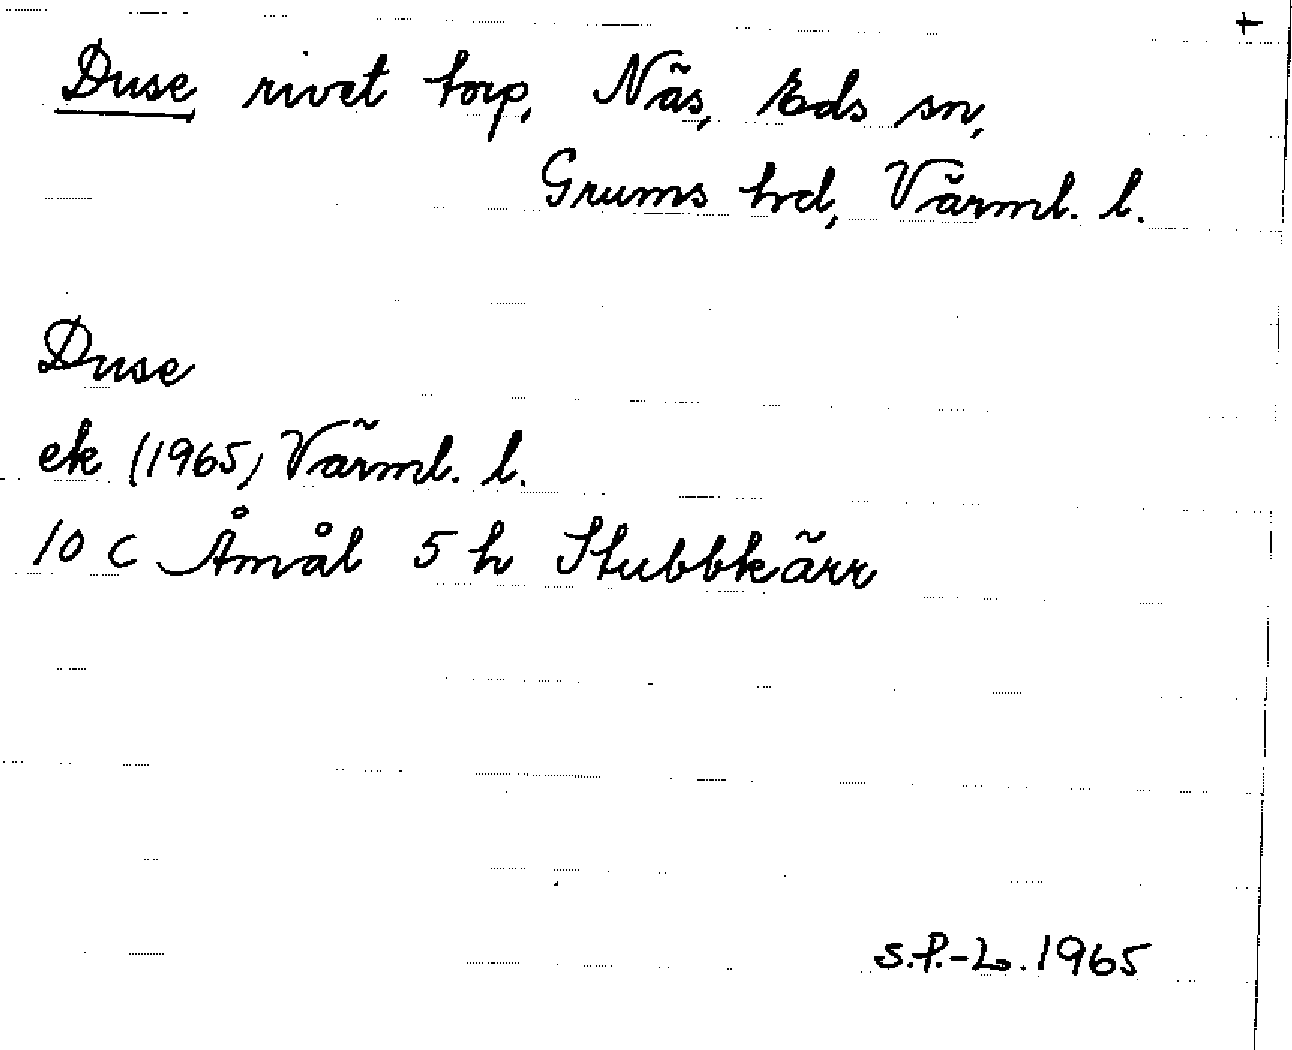 +
Duse rivet torp, Näs, Eds sn,
Grums hrd, Värml. l.
Duse
ek (1965) Värml. l.
10 C Åmål 5 h Stubbkärr
S.P.-L. 1965